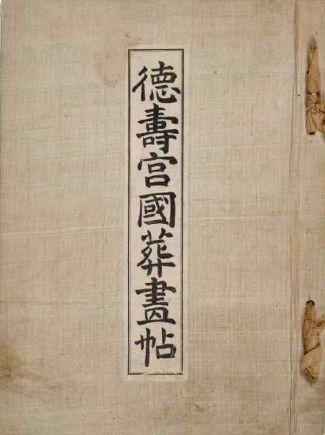 德壽宮國葬畫帖